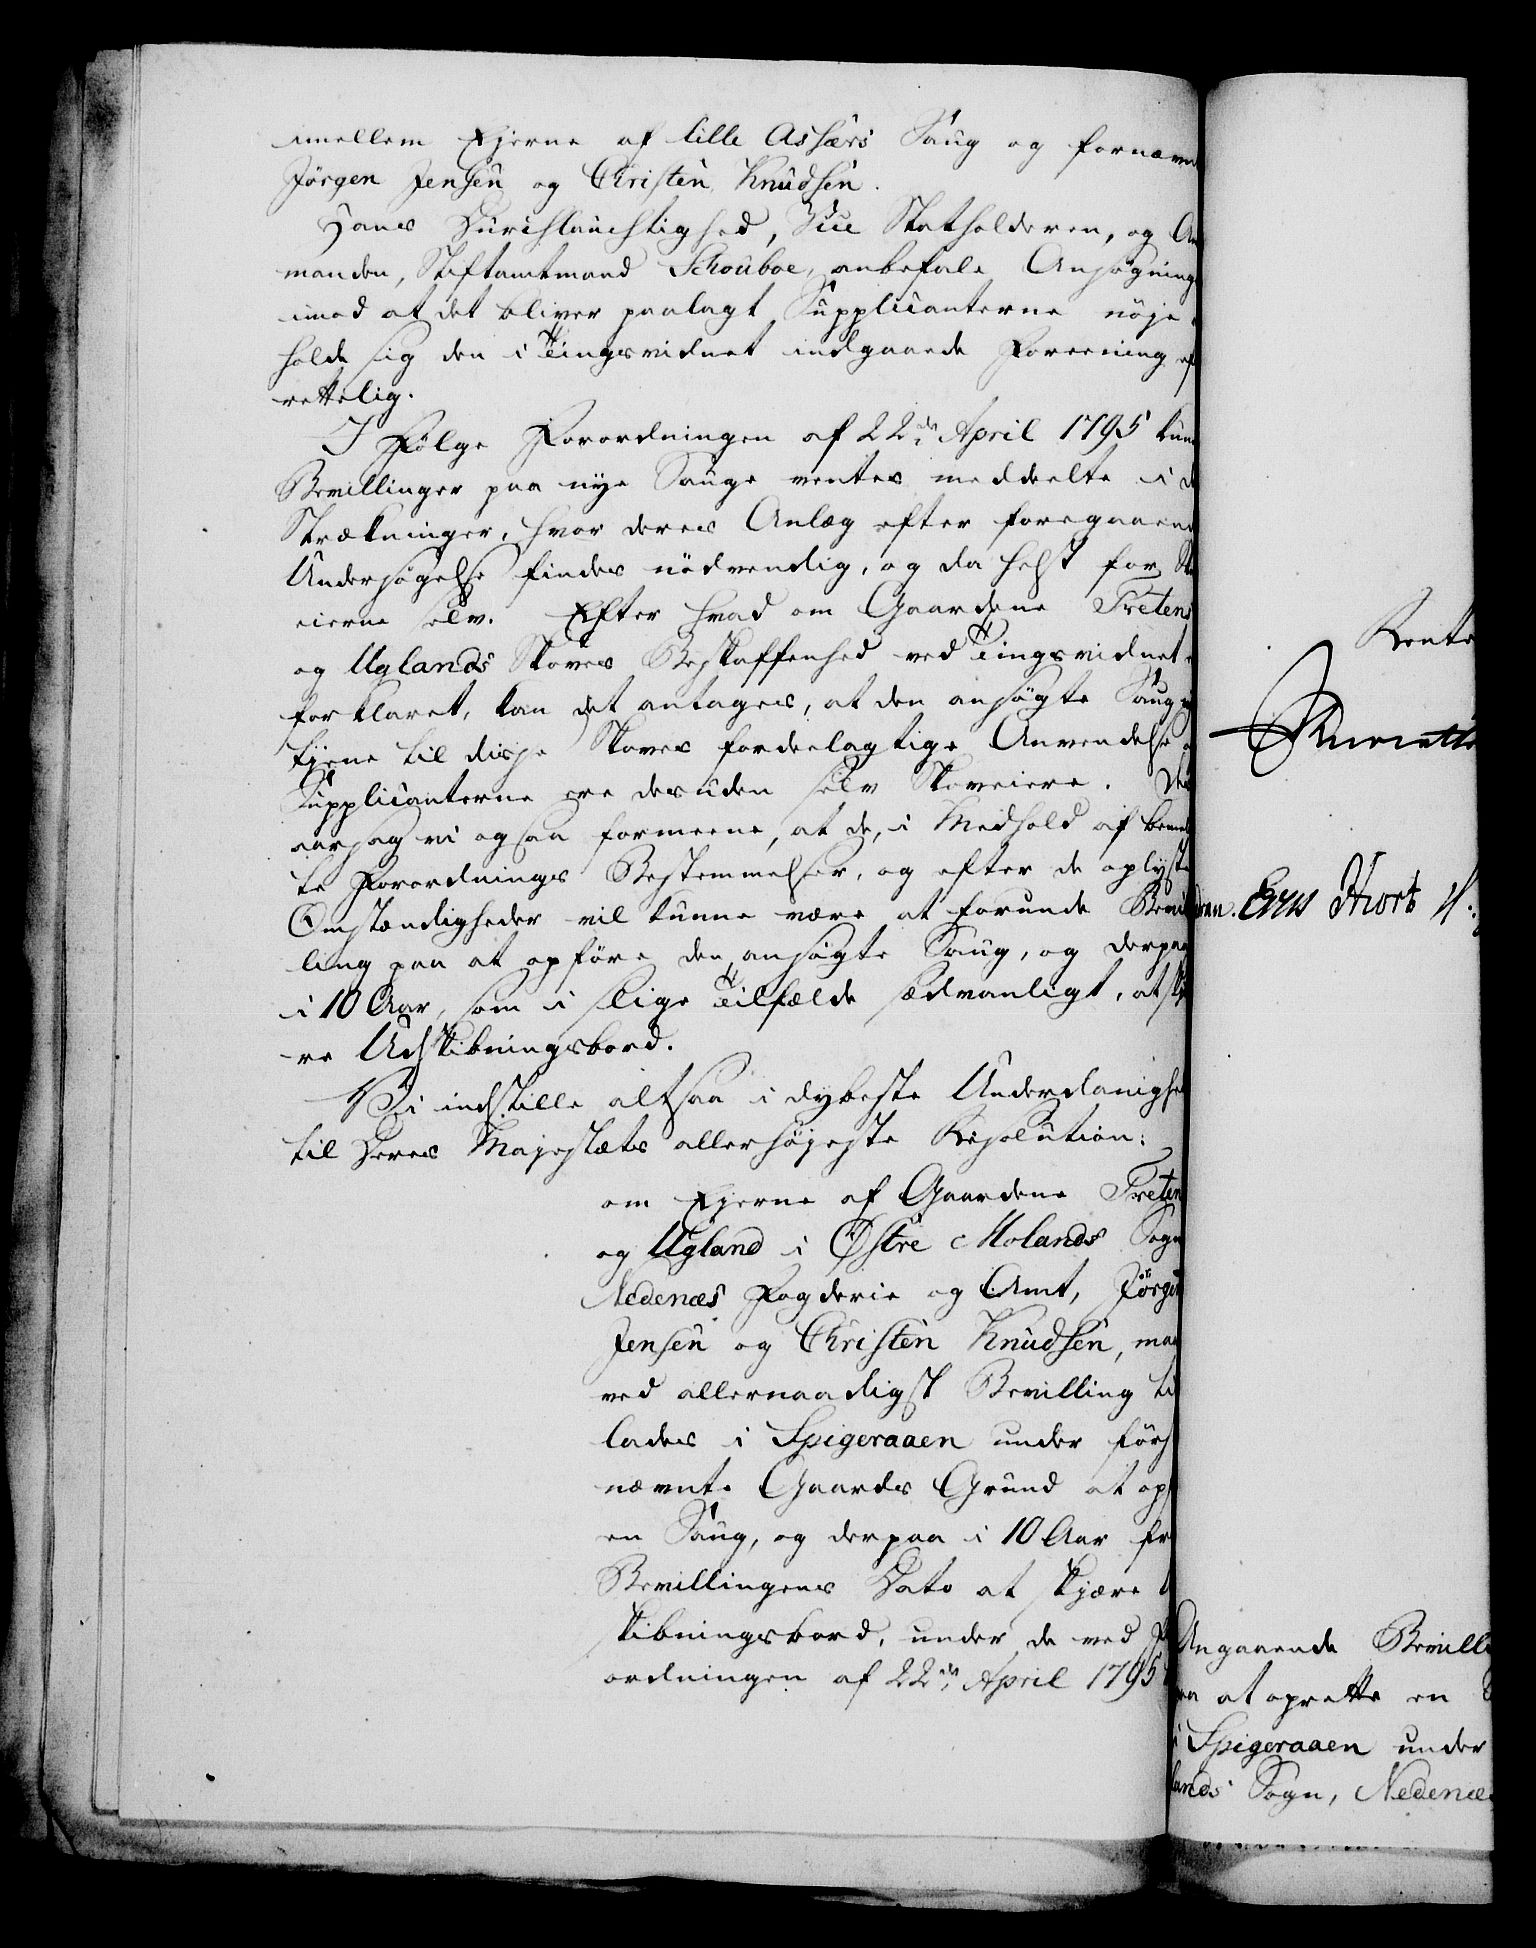 imellem Ejerne af lille Assærs Saug og fornævn
Jörgen Jensen og Christen Knudsen.
Hans Durchlauchtighed, Vice Statholderen, og Am
manden, Stiftamtmand Schouboe, anbefale Ansøgning
imod at det bliver paalagt Supplicanterne nöje
holde sig den i Tingsvidnet indgaaede Foreening ef
rettelig.
I Følge Forordningen af 22de April 1795 kun
Bevillinger paa nye Sauge ventes meddeelte i d
Strækninger, hvor deres Anlæg efter foregaaen
Undersøgelse findes nödvendig, og da helst for Sko
eierne selv. Efter hvad om Gaardene Tretens
og Uglands Skoves Beskaffenhed ved Tingsvidnet
forklaret, kan det antages, at den ansøgte Saug
tjene til disse Skoves fordeelagtige Anvendelse
Supplicanterne ere desuden selv Skoveiere. Des
aarsag vi ogsaa formeene, at de, i Medhold af bemel
te Forordnings Bestemmelser, og efter de oplyste
Omstændigheder vil kunne være at forunde Bevil
ling paa at opföre den ansøgte Saug, og derpaa
i 10 Aar, som i slige Tilfælde sædvanligt, at skjæ
re Udskibningsbord.
Vi indstille altsaa i dybeste Underdanighed
til Deres Majestæts allerhöjeste Resolution:
om Ejerne af Gaardene Treten
og Ugland i Østre Molands Sogn
Nedenæs Fogderie og Amt, Jörgen
Jensen og Christen Knudsen, maa
ved allernaadigst Bevilling til
lades i Spigeraaen under först
nævnte Gaards Grund at op
en Saug, og derpaa i 10 Aar fr
Bevillingens Dato at skjære
skibningsbord, under de ved F
ordningen af 22de April 1795
Rente
Eeg Hiort
Angaaende Bevilli
at oprette en
i Spigeraaen under
lands Sogn, Nedenæs